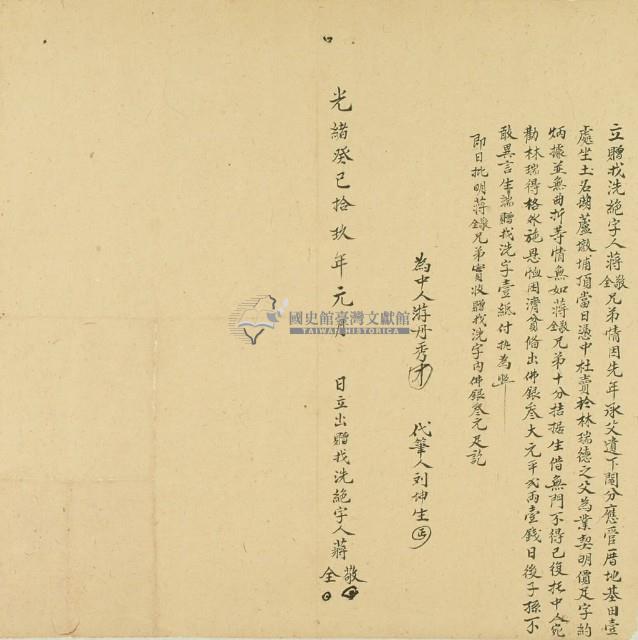 立贈找洗絕字人蔣敬全兄弟情因先年承父遺下鬮分應管厝地基田壹
處坐土名葫蘆墩埔頂當日憑中杜賣於林瑞德之父為業契明價足字約
炳據並無曲折等情無如蔣敬全兄弟十分拮据生借無門不得已復托中人宛
勸林瑞得格外施恩恤困濟貧備出佛銀叁大元平弍兩壹錢日後子孫不
敢異言生端贈找洗字壹紙付执為照
即日批明蔣敬全兄弟實收贈找洗字內佛銀叁元足訖
為中人蔣丹秀
代筆人刘坤生
光緒癸巳拾玖年元月 日立出贈找洗絕字人蔣敬全
國史館臺灣文獻館
TAIWAN HISTORICA